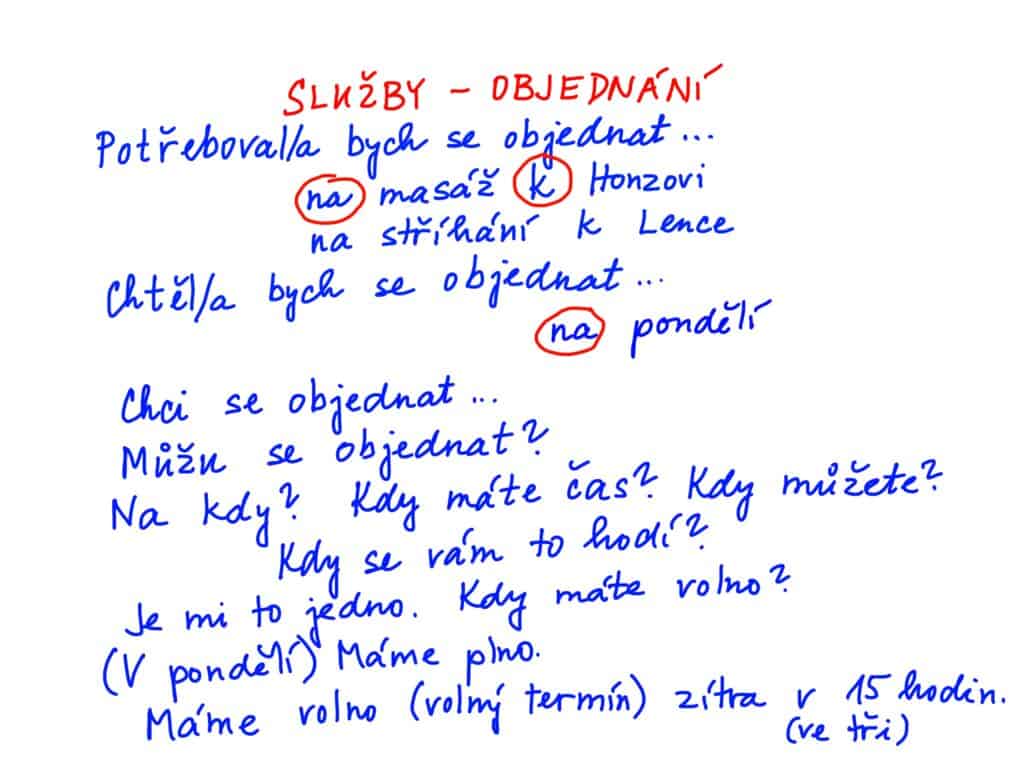 SLUŽBY - OBJEDNÁNÍ
Potřeboval/a bych se objednat...
na masáž k Honzovi
na stříhání k Lence
Chtěl/a bych se objednat...
na pondělí
Chci se objednat...
Můžu se objednat?
Na kdy? Kdy máte čas? Kdy můžete?
Kdy se vám to hodí?
Je mi to jedno. Kdy máte volno?
(V pondělí) Máme plno.
Máme volno (volný termín) zítra v 15 hodin.
(ve tři)